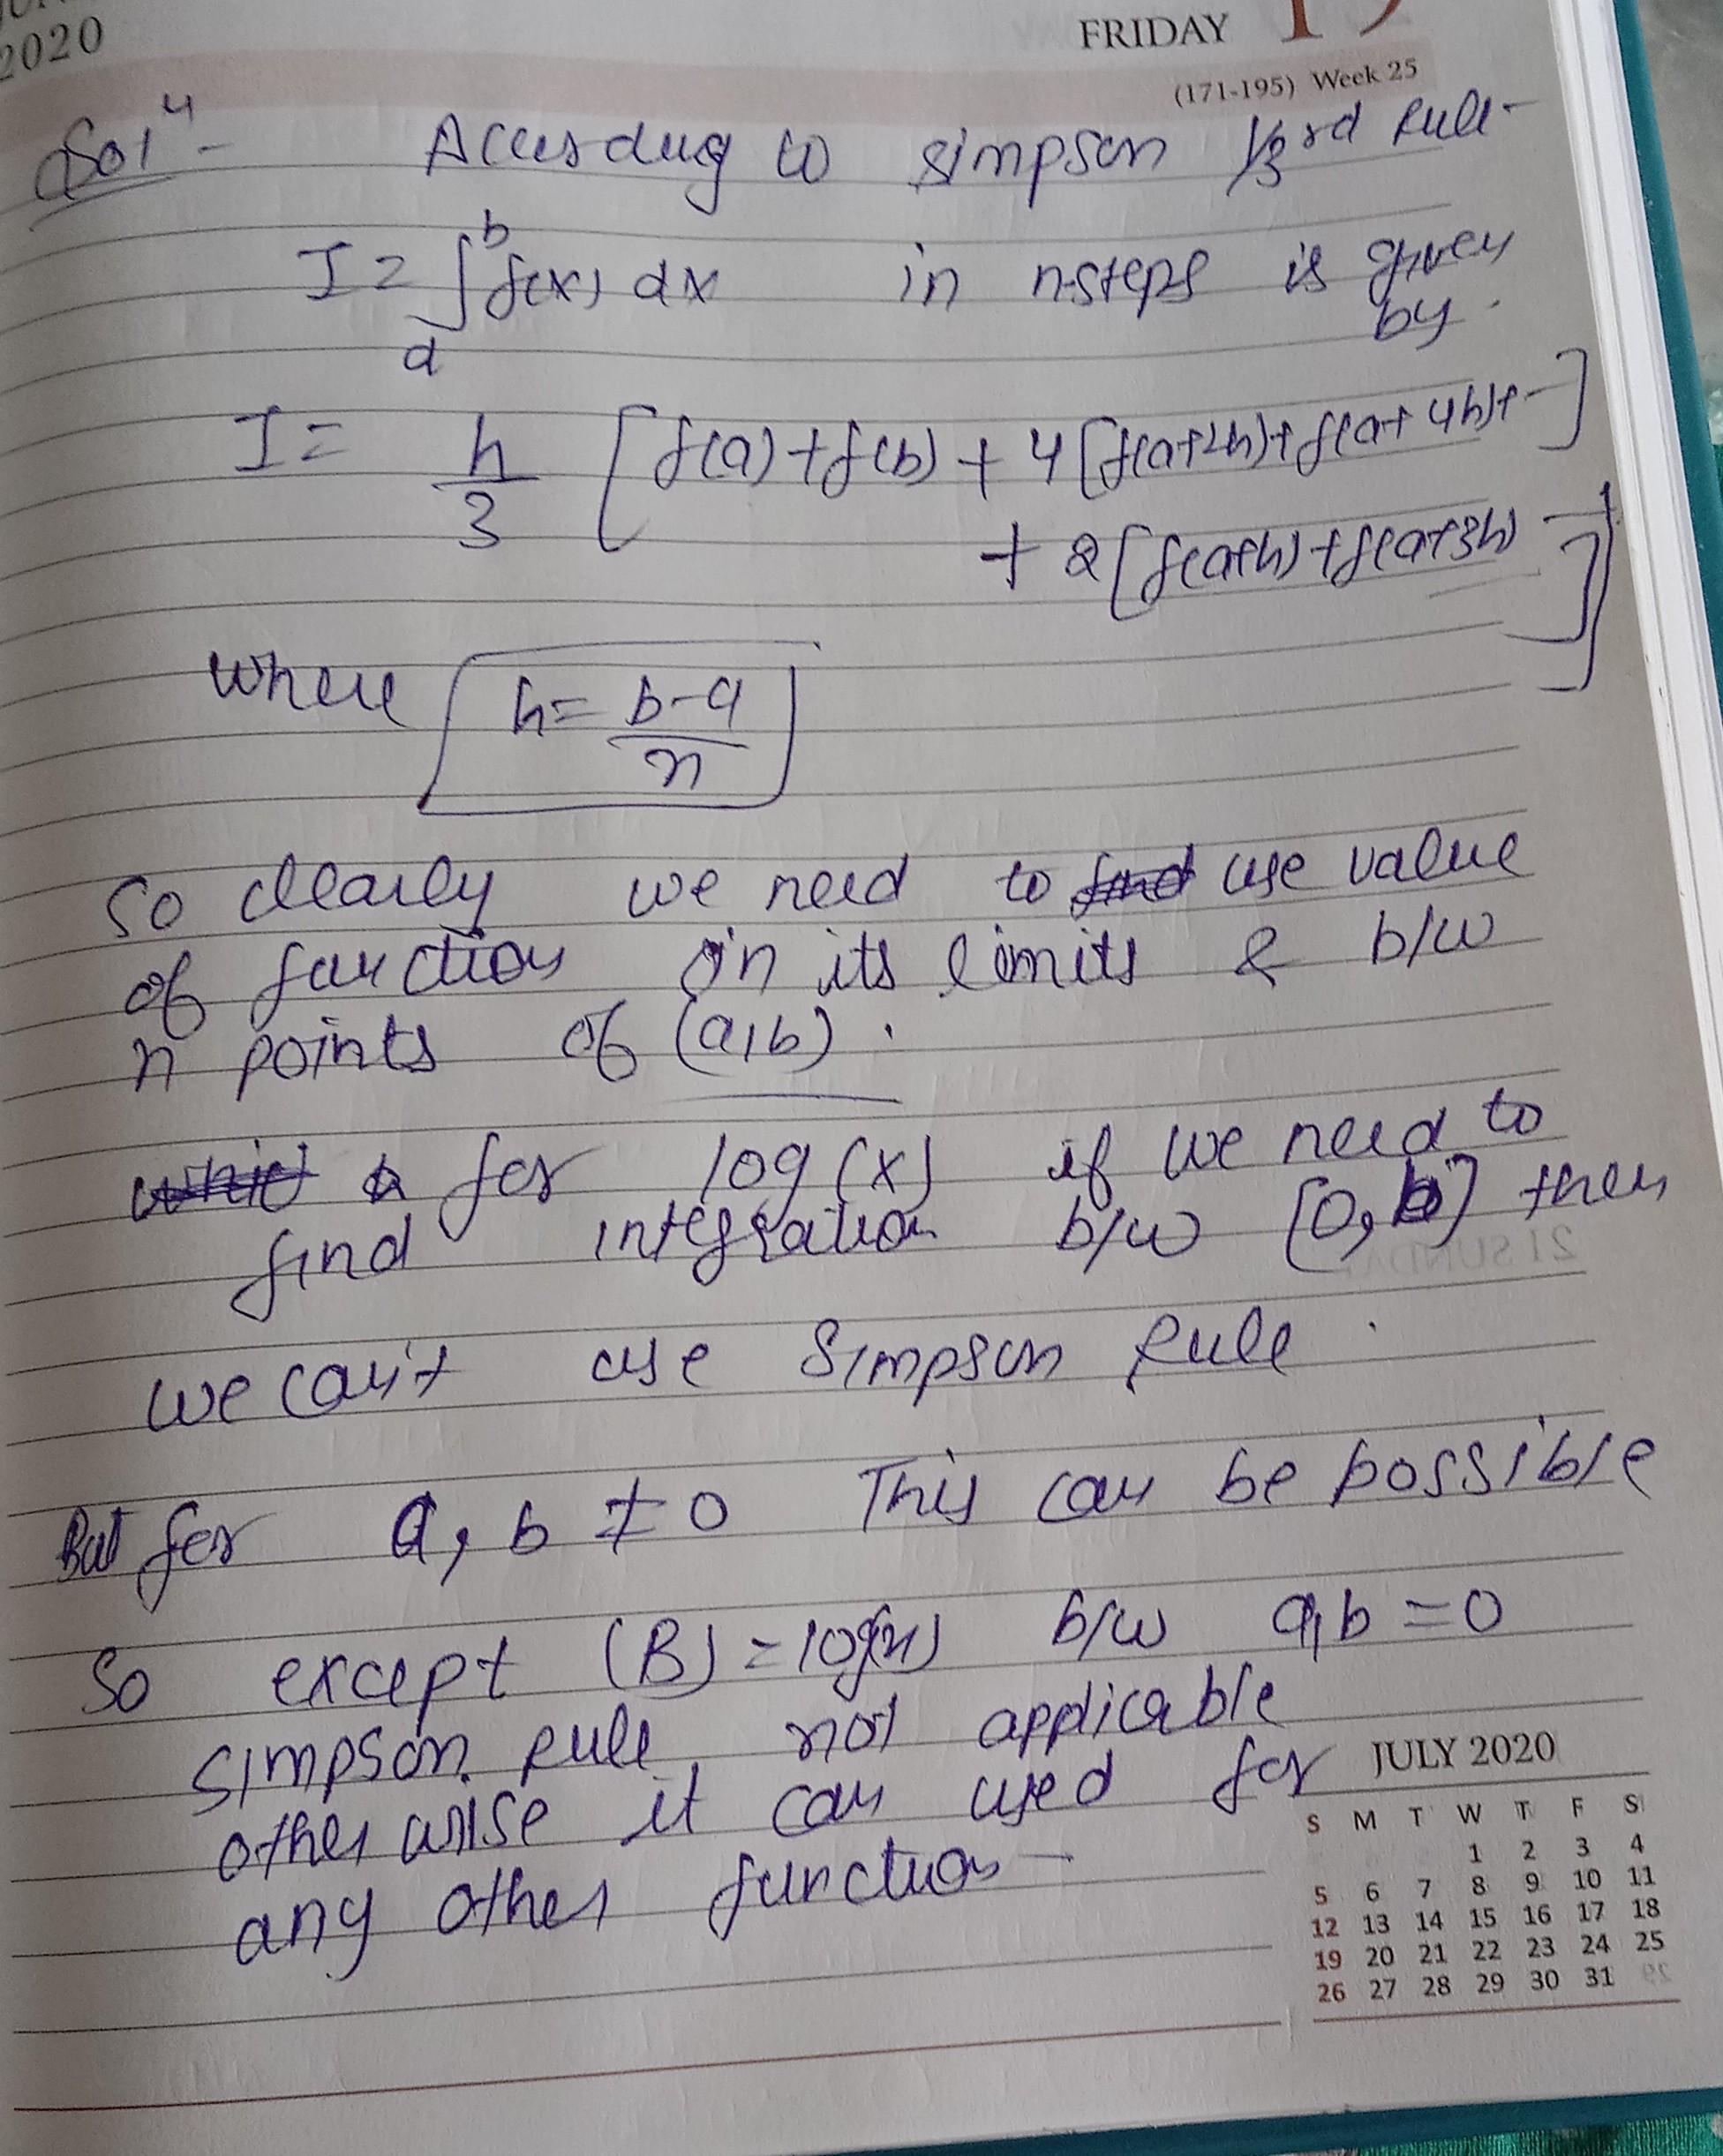 2020
FRIDAY 19
(171-195) Week 25
Solⁿ - According to simpson 1/3rd Rule-
I = ∫ₐᵇ f(x) dx in n-steps is given
by.
I = h/3 [f(a)+f(b) + 4[f(a+2h)+f(a+4h)+-]
+ 2[f(a+h)+f(a+3h) -]]
where h = b-a/n
So clearly we need to find use value
of function on its limits & b/w
n points of (a,b).
for log(x) if we need to
find integration b/w [0, b] then
we can't use Simpson Rule.
But for a, b ≠ 0 This can be possible
So except (B) = log(x) b/w a,b = 0
simpson Rule not applicable
otherwise it can used for
any other function -
JULY 2020
S M T W T F S
1 2 3 4
5 6 7 8 9 10 11
12 13 14 15 16 17 18
19 20 21 22 23 24 25
26 27 28 29 30 31